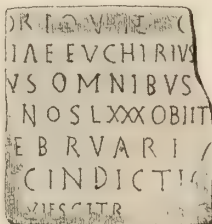 IAE EVCHIRIVS
VS OMNIBVS
NOS LXXX OBIIT
EBRVARI
C INDICTI